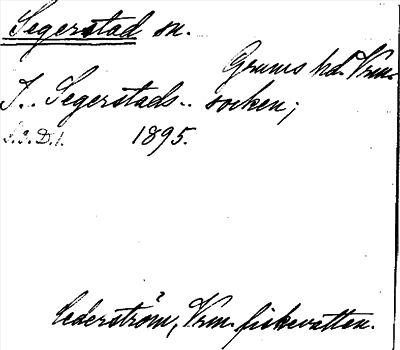 Segerstad sn.
Grums hd. Vrm.
I.. Segerstads.. socken;
1895.
Cederström, Vrm. fiskevatten.